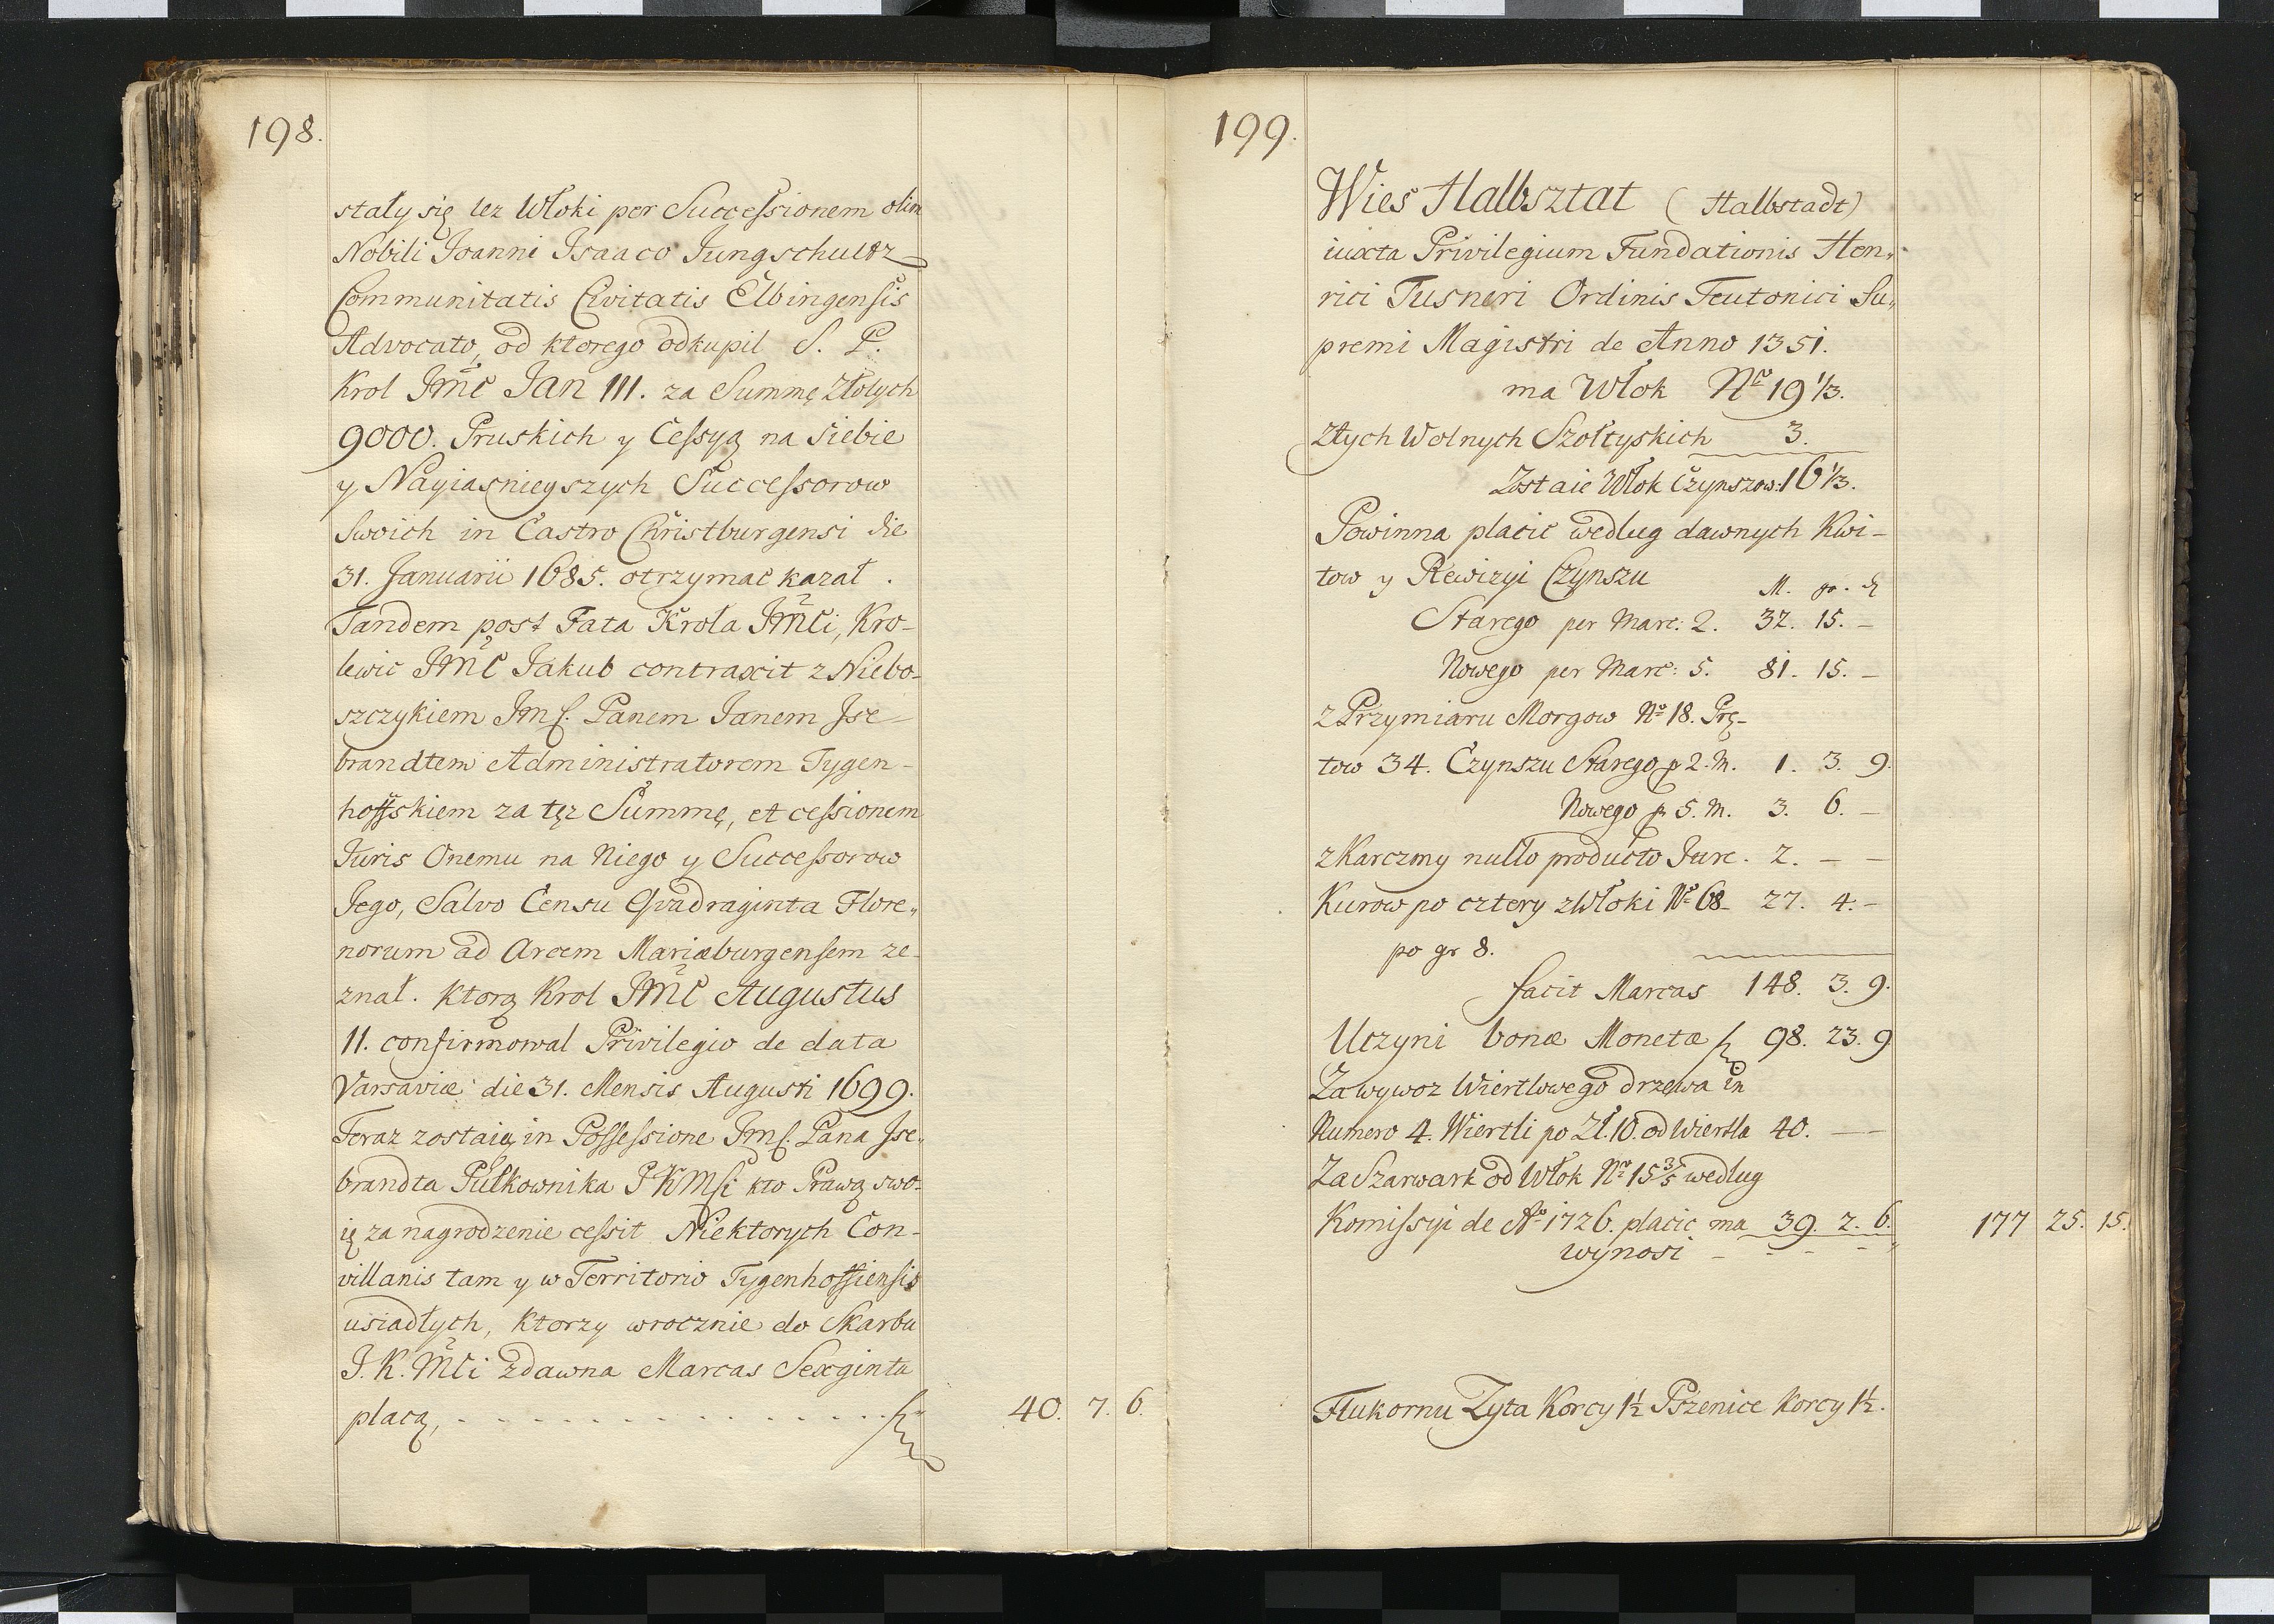 198.
stały się tez Włoki per Successionem olim
Nobili Joanni Isaaco Jungschultz
Communitatis Civitatis Elbingensis
Advocato, od ktorego odkupil S. P.
Krol JMC Jan III. za Summę Złotych
9000. Pruskich y Cessyą na siebie
y Nayiasnieyszych Successorow
Swoich in Castro Christburgensi die
31. Januarii 1685. otrzymac kazał.
Tandem post Fata Krola JMCi, Kro-
lewic JMC Jakub contraxit z Niebo-
szczykiem Jmſ. Panem Janem Ise-
brandtem Administratorem Tygen-
hoffskiem za tęz Summę, et cessionem
Juris Onemu na Niego y Successorow
Jego, Salvo Censu Qvadraginta Flore„
norum ad Arcem Mariæburgensem ze-
znał. Ktorą Krol JMC Augustus
II. confirmowal Privilegio de data
Varsaviæ die 31. Mensis Augusti 1699.
Teraz zostaią in Possessione Jmſ. Pana Ise„
brandta Pułkownika JKMſi kto Prawą swo-
ię za nagrodzenie cessit Niektorych Con-
villanis tam y w Territorio Tygenhoffiensis
usiadłych, Ktorzy wrocznie do Skarbu
J. K. MCi zdawna Marcas Sexginta
płacą, - - - - - - - - - - - - 40. 7. 6.
199.
Wies Halbsztat (Halbstadt)
iuxta Privilegium Fundationis Hen„
rici Tusneri Ordinis Teutonici Su„
premi Magistri de Anno 1351.
ma Włok No 19 1/3.
Ztych Wolnych Szołtyskich 3.
Zostaie Włok Czynszow: 16 1/3.
Powinna placic według dawnych Kwi-
tow y Rewizyi Czynszu M. gr. ₰
Starego per Marc: 2. 32. 15. -
Nowego per Marc: 5. 81. 15. -
z Przymiaru Morgow No 18. Prę-
tow 34. Czynszu Starego p 2. M. 1. 3. 9.
Nowego p 5. M. 3. 6. -
z Karczmy nullo producto Jure. 2. - -
Kurow po cztery z Włoki No 68 - 27. 4. -
po gr 8.
facit Marcas 148. 3. 9.
Uczyni bonæ Monetæ 98. 23. 9
Za wywoz Wiertlowego drzewa in
Numero 4. Wiertli po Zł. 10. od Wiertla 40. - -
Za Szarwark od Włok No 15 3/5 według
Komissyi de Ao 1726. placic ma 39. 2. 6.
wynosi - - - - 177 25. 15.
Hukornu Zyta Korcy 1½ Pszenice Korcy 1½.